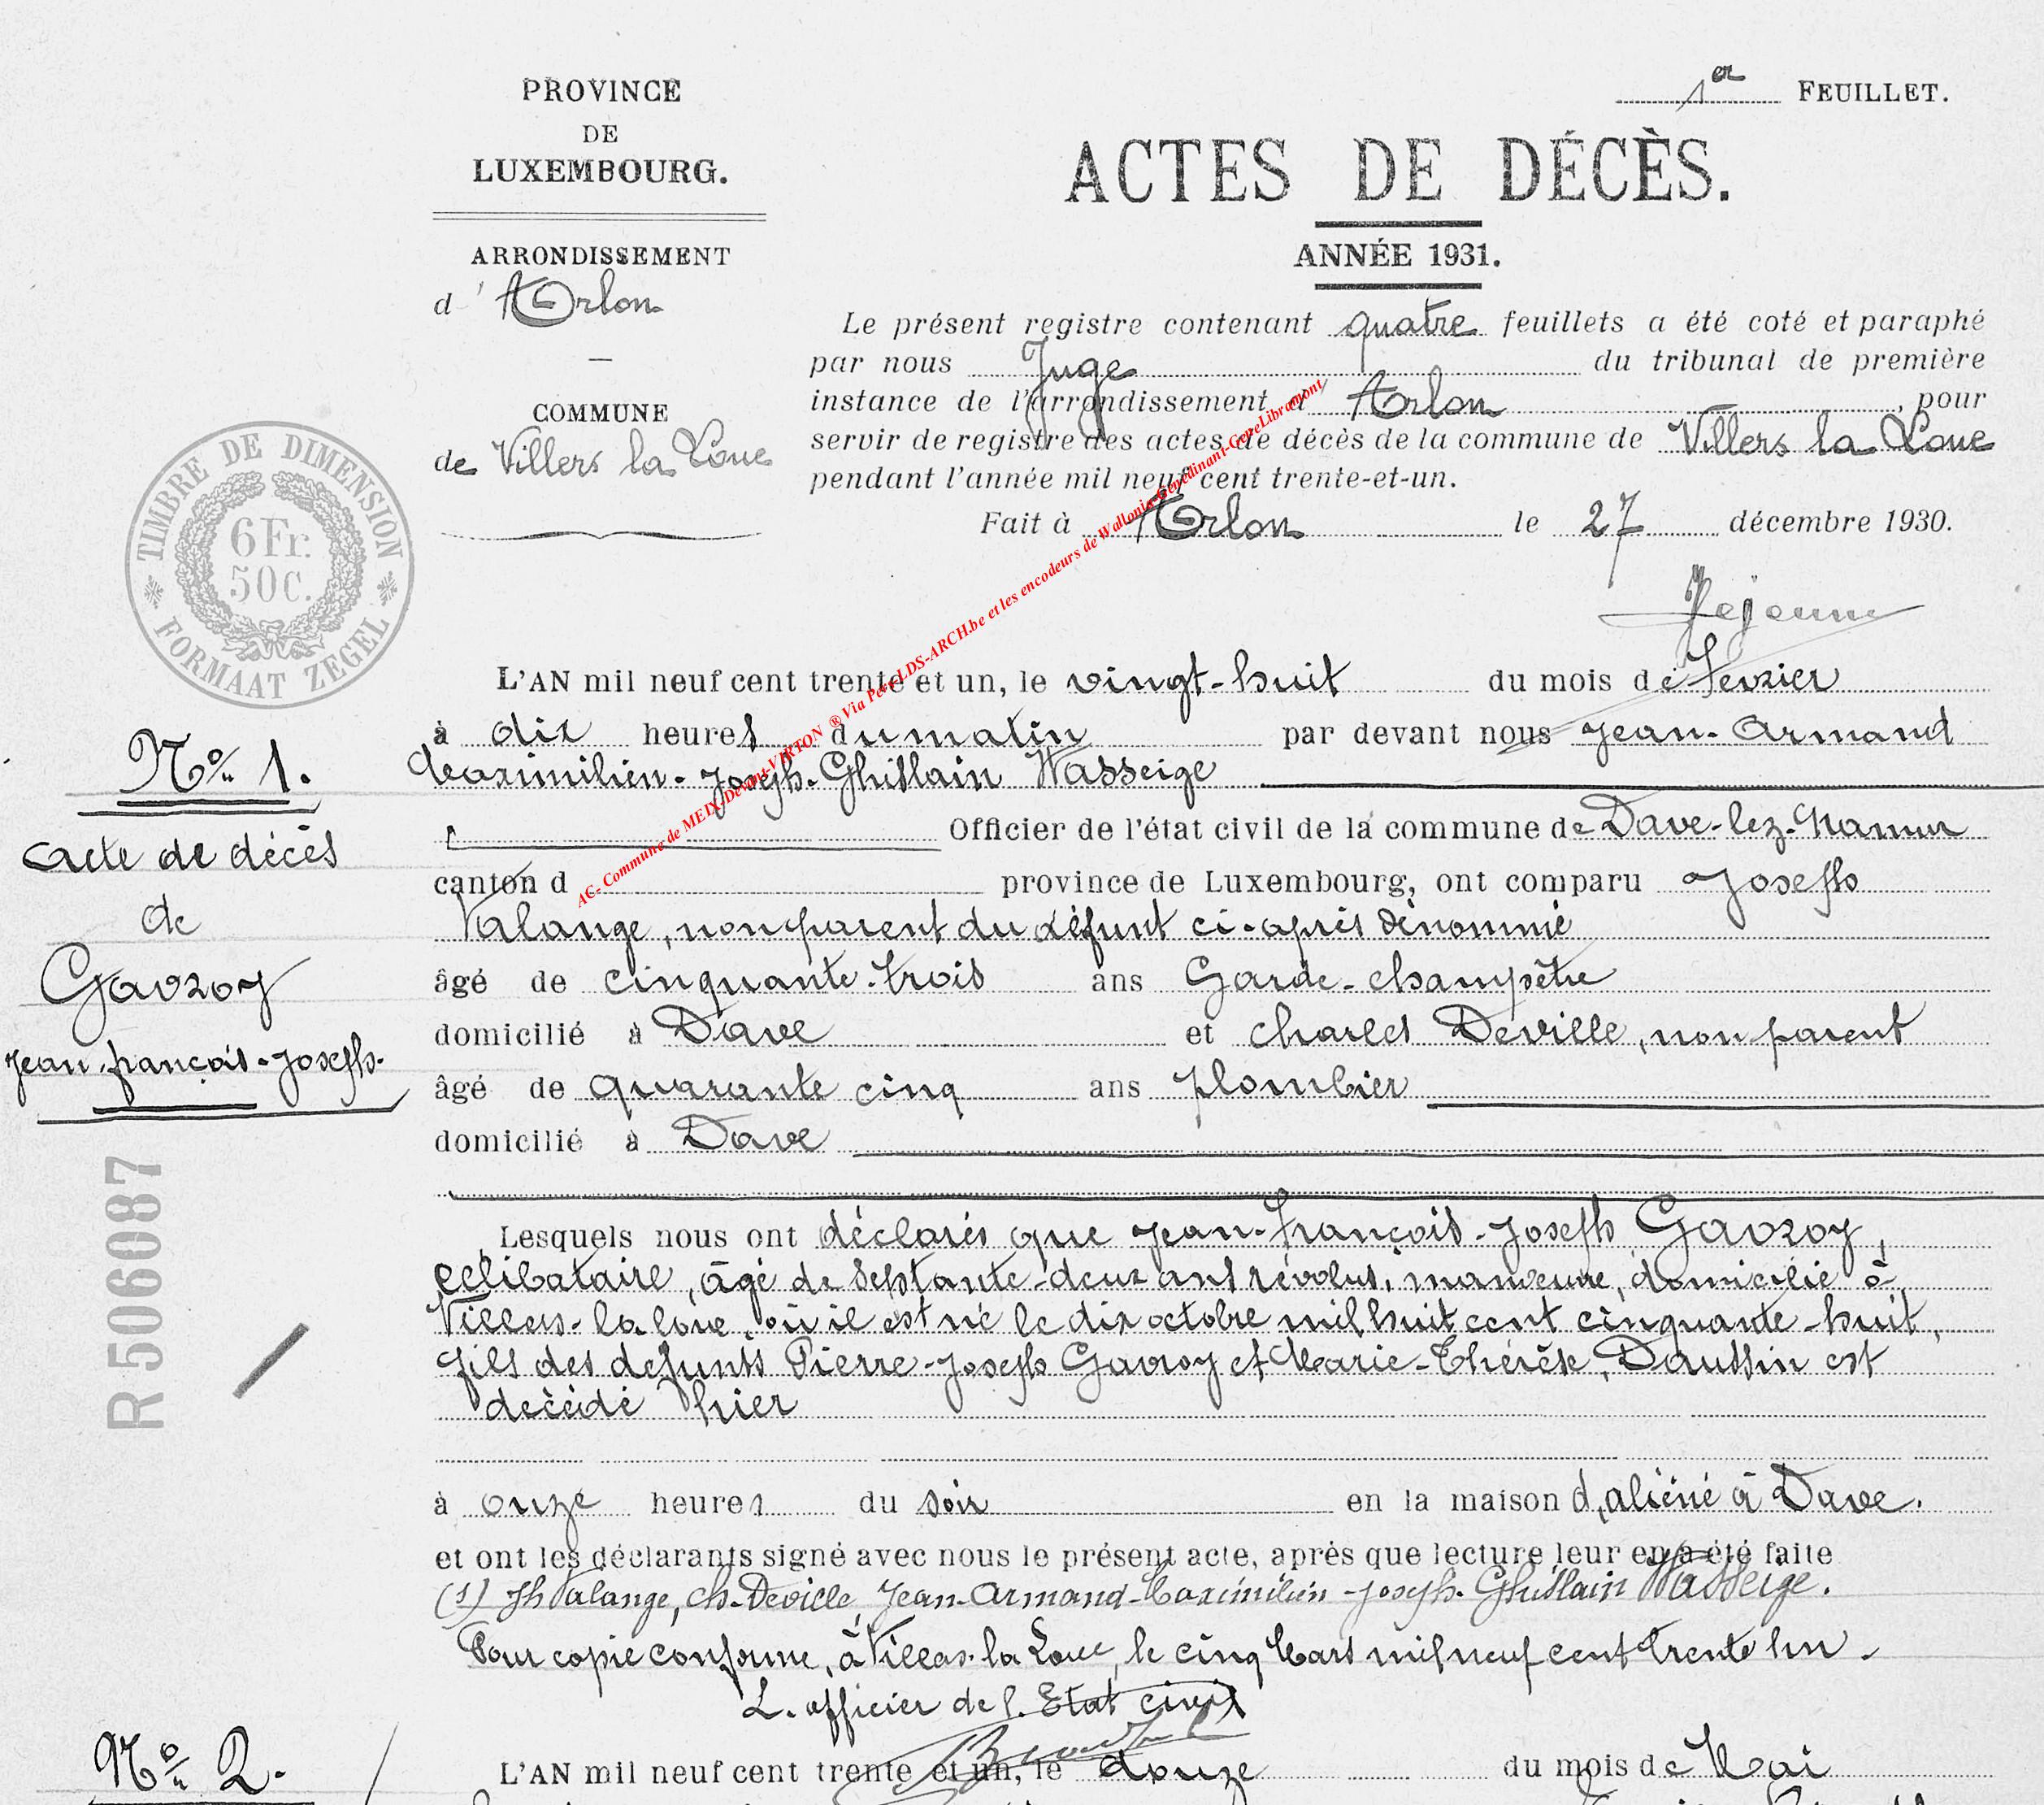 PROVINCE
DE
LUXEMBOURG.
ARRONDISSEMENT
d'Arlon
COMMUNE
de Villers la Loue
1er FEUILLET.
ACTES DE DÉCÈS.
ANNÉE 1931.
Le présent registre contenant quatre feuillets a été coté et paraphé
par nous Juge du tribunal de première
instance de l'arrondissement d' Arlon, pour
servir de registre des actes de décès de la commune de Villers la Loue
pendant l'année mil neuf cent trente-et-un.
Fait à Arlon le 27 décembre 1930.
Lejeune
TIMBRE DE DIMENSION
6 Fr.
50 C.
FORMAAT ZEGEL
AC- Commune de MEIX-Devant-VIRTON ® Via Pers-LDS-ARCH.be et les encodeurs de Wallonia-Genedinant-GeneLibramont
N° 1.
Acte de décès
de
Gavroy
Jean-françois-Joseph.
R 506087
L'AN mil neuf cent trente et un, le vingt-huit du mois de Fevrier
à dix heures du matin par devant nous Jean-Armand
Maximilien-Joseph-Ghislain Wasseige
Officier de l'état civil de la commune de Dave-lez-Namur
canton d province de Luxembourg, ont comparu Joseph
Valange, non parent du défunt ci-après dénommé
âgé de cinquante-trois ans Garde-champêtre
domicilié à Dave et Charles Deville, non parent
âgé de quarante cinq ans plombier
domicilié à Dave
Lesquels nous ont déclarés que Jean-François-Joseph Gavroy,
célibataire, âgé de septante-deux ans révolus, manœuvre, domicilié à
Villers-la-loue, où il est né le dix octobre mil huit cent cinquante-huit,
fils des defunts Pierre-Joseph Gavroy et Marie-Thérèse, Daussin est
décédé hier
à onze heures du soir en la maison d'aliéné à Dave.
et ont les déclarants signé avec nous le présent acte, après que lecture leur en a été faite
(s) Jh Valange, Ch-Deville, Jean-Armand-Maximilien-Joseph-Ghislain Wasseige.
Pour copie conforme, à Villers-la Loue, le cinq Mars mil neuf cent trente un.
L'officier de l'Etat civil
N° 2.
L'AN mil neuf cent trente et un, le douze du mois de Mai